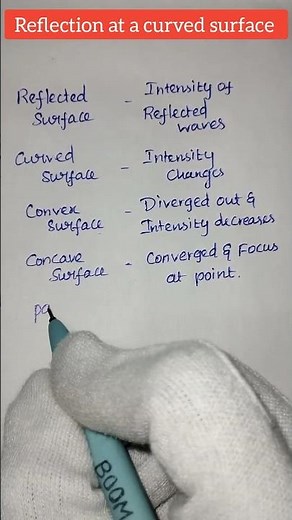 Reflection at a curved surface
Reflected - Intensity of
Surface Reflected
waves
Curved - Intensity
Surface Changes
Convex - Diverged out &
Surface Intensity decreases
Concave - Converged & Focus
Surface at point.
pa
BOOM